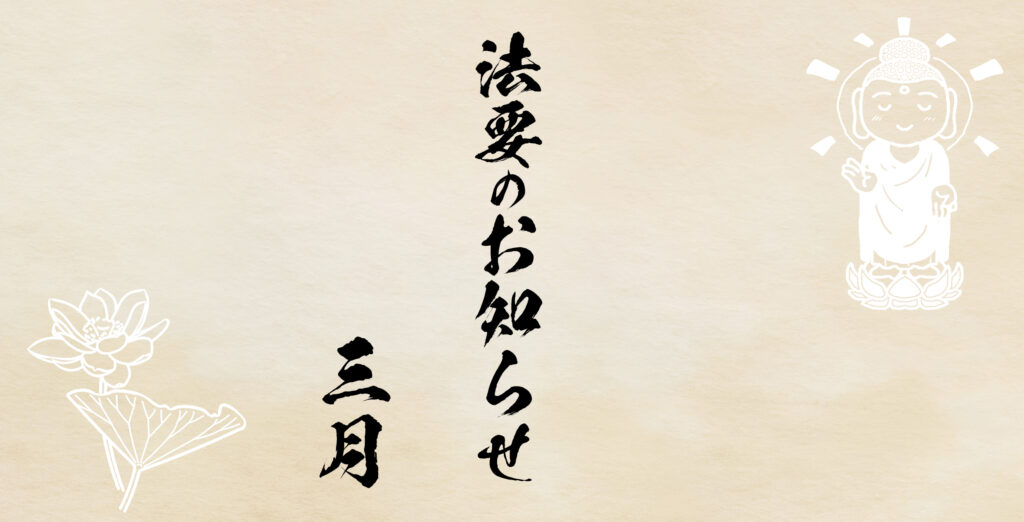 法要のお知らせ
三月